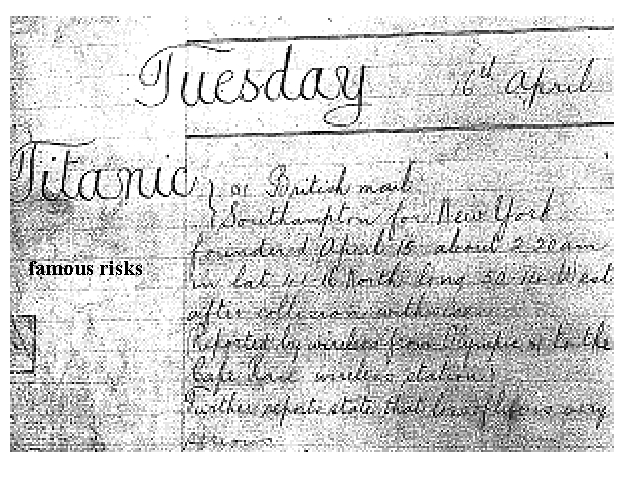 Tuesday 16th April
Titanic } British mail
Southampton for New York
foundered April 15 about 2 20 am
in lat 41 16 North long 50 14 West
after collision with
famous risks
Reported by wireless from Olympic to the
Cape Race wireless station
Further reports state that loss of life is very
serious